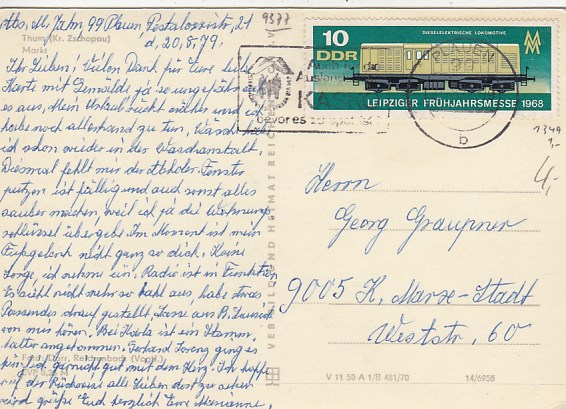 Plauen Pestalozzistr. 21
d. 20.8.79.
Thum (Kr. Zschopau)
Markt
Ihr Lieben! Vielen Dank für Eure liebe
Karte mit Gemälde, ja so ungefähr
es aus, Mein Urlaub rückt näher und ich
habe noch allerhand zu tun,
ich schon wieder in der
Diesmal fehlt mir der Fenster
putzen ist fällig und auch sonst alles
sauber machen, weil ich ja die Wohnung
schlüssel übergebe. Im Moment ist mein
Fußgelenk nicht ganz so dick. Keine
Sorge, ich nehme ein. Radio ist in Funktion
Es sieht nicht mehr so kahl aus, habe etwas
Passendes drauf gestellt. Lasse aus B. Tausend
von mir hören. Bei ist ein Stamm
halter angekommen. Gerhard ging es
gar nicht gut mit dem Herz. Ich hoffe
auf der Rückreise alle Lieben dort zu sehen
und grüße Euch herzlich Eure Marianne
Foto: Darr, Reichenbach (Vogtl.)
VERLAG BILD UND HEIMAT REICHENBACH
9377
10
DDR
DIESELELEKTRISCHE LOKOMOTIVE
MM
LEIPZIGER FRÜHJAHRSMESSE 1968
bevor es zu spät ist
b
1349
1,-
4,-
Herrn
Georg Graupner
9005 K. Marx-Stadt
Weststr. 60
V 11 50 A 1/B 481/70
14/6956